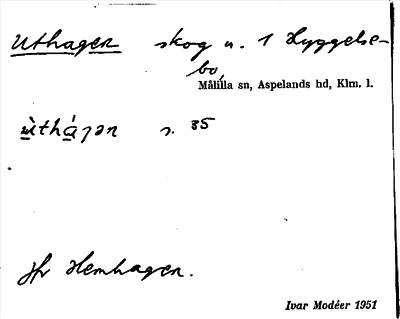 Uthagen skog u. 1 Hyggelse-
bo,
Målilla sn, Aspelands hd, Klm. l.
ùthájən s. 35
Jfr Hemhagen.
Ivar Modéer 1951